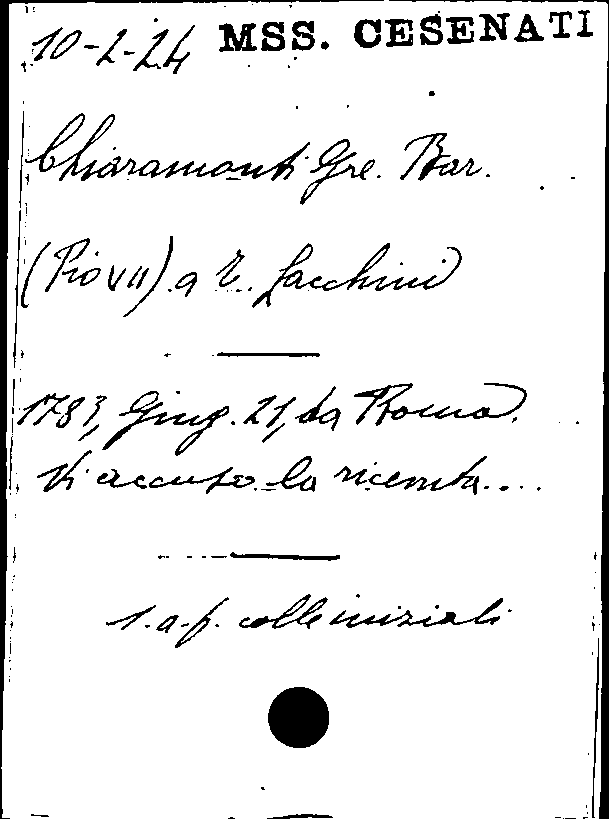 10-2-24 MSS. CESENATI
Chiaramonti Gre. Bar.
(Pio VII) a T. Zacchini
1783, Giug. 21, da Roma.
Vi accuso la ricevuta....
1. a. f. colle iniziali